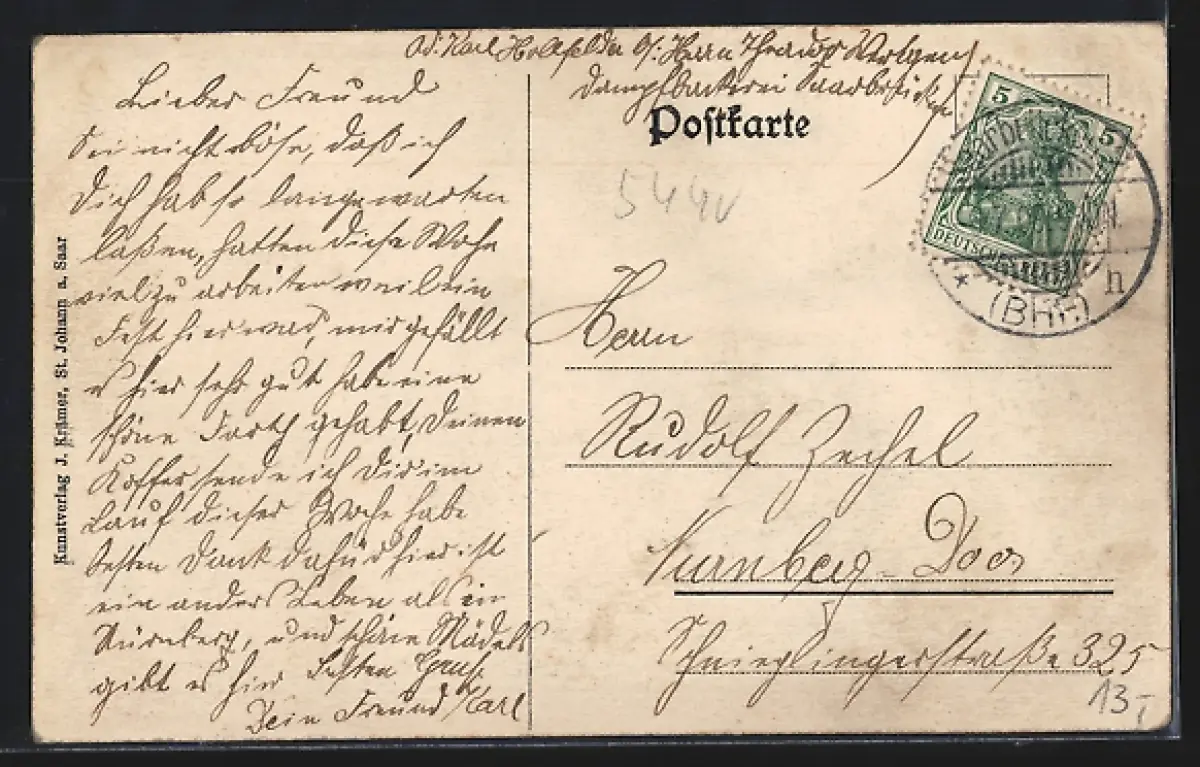 Ad. Karl Hollfelder b/. Herrn Theador
Dampfbäckerei Saarbrücken
Postkarte
544v
Lieber Freund
Sei nicht böse, daß ich
Dich hab so lange warten
laßen, hatten diese Woche
viel zu arbeiten weil ein
Fest hier war, mir gefällt
es hier sehr gut habe eine
schöne gehabt, Deinen
Koffer sende ich Dir im
Lauf dieser Woche habe
besten Dank dafür hier ist
ein anders Leben als in
Nürnberg, und schöne Mädels
gibt es hier Besten Gruß
Dein Freund Karl
Herrn
Rudolf Zechel
Nürnberg-Doos
Schnieglingerstraße 325
13,-
Kunstverlag J. Krämer, St. Johann a. Saar
5 5
DEUTSCHES
* (BHF.) h